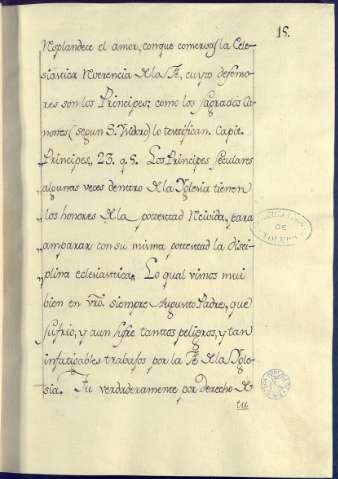 15.
Resplandece el amor, con que comervas la Ecle-
siastica Reverencia de la Fé, cuyos defenso-
res son los Principes: como los Sagrados Ca-
nones (segun S. Ysidoro) lo testifican. Capit.
Principes, 23. q. 5. Los Principes seculares
algunas veces dentro de la Yglesia tienen
los honores de la potestad Recivida, para
amparar con su misma potestad la disci-
plina eclesiastica. Lo qual vimos mui
bien en vrõ. siempre Augusto Padre, que
sufrio, y aun sufre tantos peligros, y tan
infatigables trabajos por la Fé de la Ygle-
sia. Tu verdaderamente por derecho de
tu
DE
TOLEDO